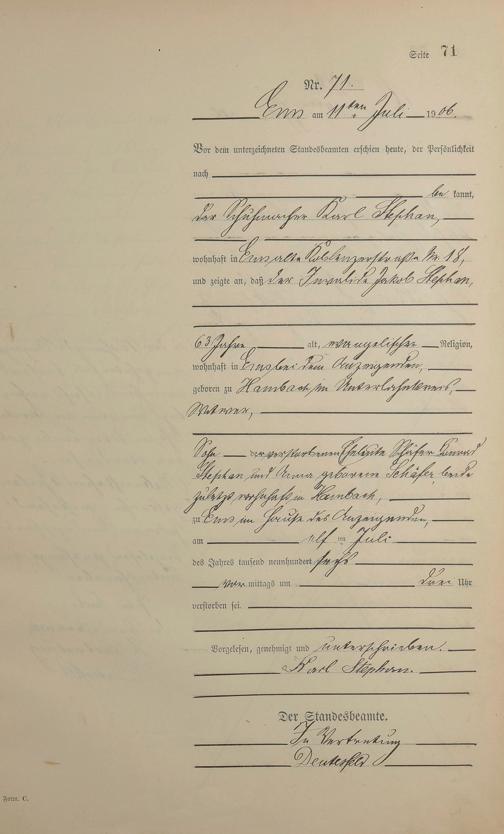 Seite 71
Nr. 71.
Ems am 11ten Juli 1906.
Vor dem unterzeichneten Standesbeamten erschien heute, der Persönlichkeit
nach
be kannt,
der Schuhmacher Karl Stephan,
wohnhaft in Ems alte Koblenzerstraße Nr 18,
und zeigte an, daß der Invalide Jakob Stephan,
63 Jahre alt, evangelischer Religion,
wohnhaft in Ems bei dem Anzeigenden,
geboren zu Hambach im Unterlahnkreis,
Witwer,
Sohn der verstorbenen Eheleute Schäfer Konrad
Stephan und Anna geborene Schäfer beide
zuletzt wohnhaft in Hambach,
zu Ems im Hause des Anzeigenden,
am elf ten Juli
des Jahres tausend neunhundert sechs
vor mittags um drei Uhr
verstorben sei.
Vorgelesen, genehmigt und unterschrieben.
Karl Stephan.
Der Standesbeamte.
In Vertretung
Form. C.